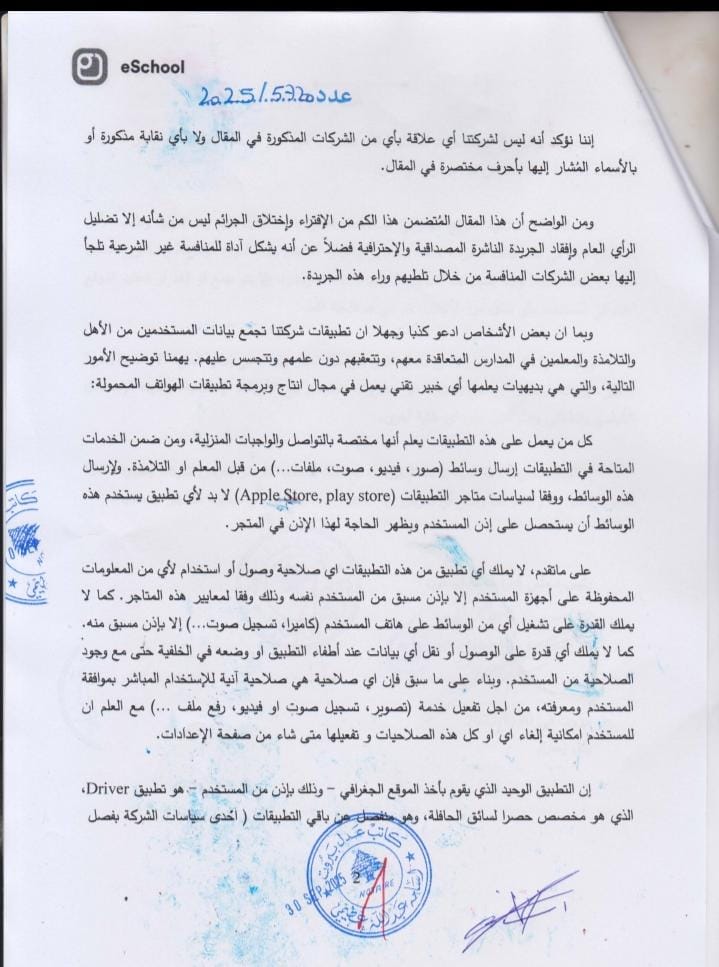 eSchool
عدد 2025/5720
إننا نؤكد أنه ليس لشركتنا أي علاقة بأي من الشركات المذكورة في المقال ولا بأي نقابة مذكورة أو
بالأسماء المُشار إليها بأحرف مختصرة في المقال.
ومن الواضح أن هذا المقال المُتضمن هذا الكم من الإفتراء وإختلاق الجرائم ليس من شأنه إلا تضليل
الرأي العام وإفقاد الجريدة الناشرة المصداقية والإحترافية فضلاً عن أنه يشكل آداة للمنافسة غير الشرعية تلجأ
إليها بعض الشركات المنافسة من خلال تلطيهم وراء هذه الجريدة.
وبما ان بعض الأشخاص ادعو كذبا وجهلا ان تطبيقات شركتنا تجمع بيانات المستخدمين من الأهل
والتلامذة والمعلمين في المدارس المتعاقدة معهم، وتتعقبهم دون علمهم وتتجسس عليهم. يهمنا توضيح الأمور
التالية، والتي هي بديهيات يعلمها أي خبير تقني يعمل في مجال انتاج وبرمجة تطبيقات الهواتف المحمولة:
كل من يعمل على هذه التطبيقات يعلم أنها مختصة بالتواصل والواجبات المنزلية، ومن ضمن الخدمات
المتاحة في التطبيقات إرسال وسائط (صور، فيديو، صوت، ملفات...) من قبل المعلم او التلامذة. ولإرسال
هذه الوسائط، ووفقا لسياسات متاجر التطبيقات (Apple Store, play store) لا بد لأي تطبيق يستخدم هذه
الوسائط أن يستحصل على إذن المستخدم ويظهر الحاجة لهذا الإذن في المتجر.
على ماتقدم، لا يملك أي تطبيق من هذه التطبيقات اي صلاحية وصول أو استخدام لأي من المعلومات
المحفوظة على أجهزة المستخدم إلا بإذن مسبق من المستخدم نفسه وذلك وفقا لمعايير هذه المتاجر. كما لا
يملك القدرة على تشغيل أي من الوسائط على هاتف المستخدم (كاميرا، تسجيل صوت...) إلا بإذن مسبق منه.
كما لا يملك أي قدرة على الوصول أو نقل أي بيانات عند أطفاء التطبيق او وضعه في الخلفية حتى مع وجود
الصلاحية من المستخدم. وبناء على ما سبق فإن اي صلاحية هي صلاحية آنية للإستخدام المباشر بموافقة
المستخدم ومعرفته، من اجل تفعيل خدمة (تصوير، تسجيل صوت او فيديو، رفع ملف ...) مع العلم ان
للمستخدم امكانية إلغاء اي او كل هذه الصلاحيات و تفعيلها متى شاء من صفحة الإعدادات.
إن التطبيق الوحيد الذي يقوم بأخذ الموقع الجغرافي – وذلك بإذن من المستخدم – هو تطبيق Driver،
الذي هو مخصص حصرا لسائق الحافلة، وهو منفصل عن باقي التطبيقات ( أحدى سياسات الشركة بفصل
كاتب عدل بيروت
2
NOTAIRE
30 SEP 2025